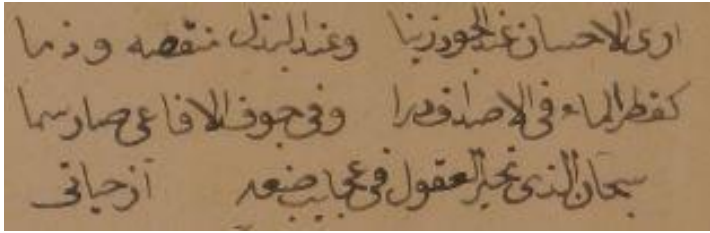 ارى الاحسان عند الجود زينا وعند النذل منقصه وذما
كقطر الماء فى الاصداف درا وفى جوف الافاعى صار سما
سبحان الذى تحير العقول فى عجايب صنعه